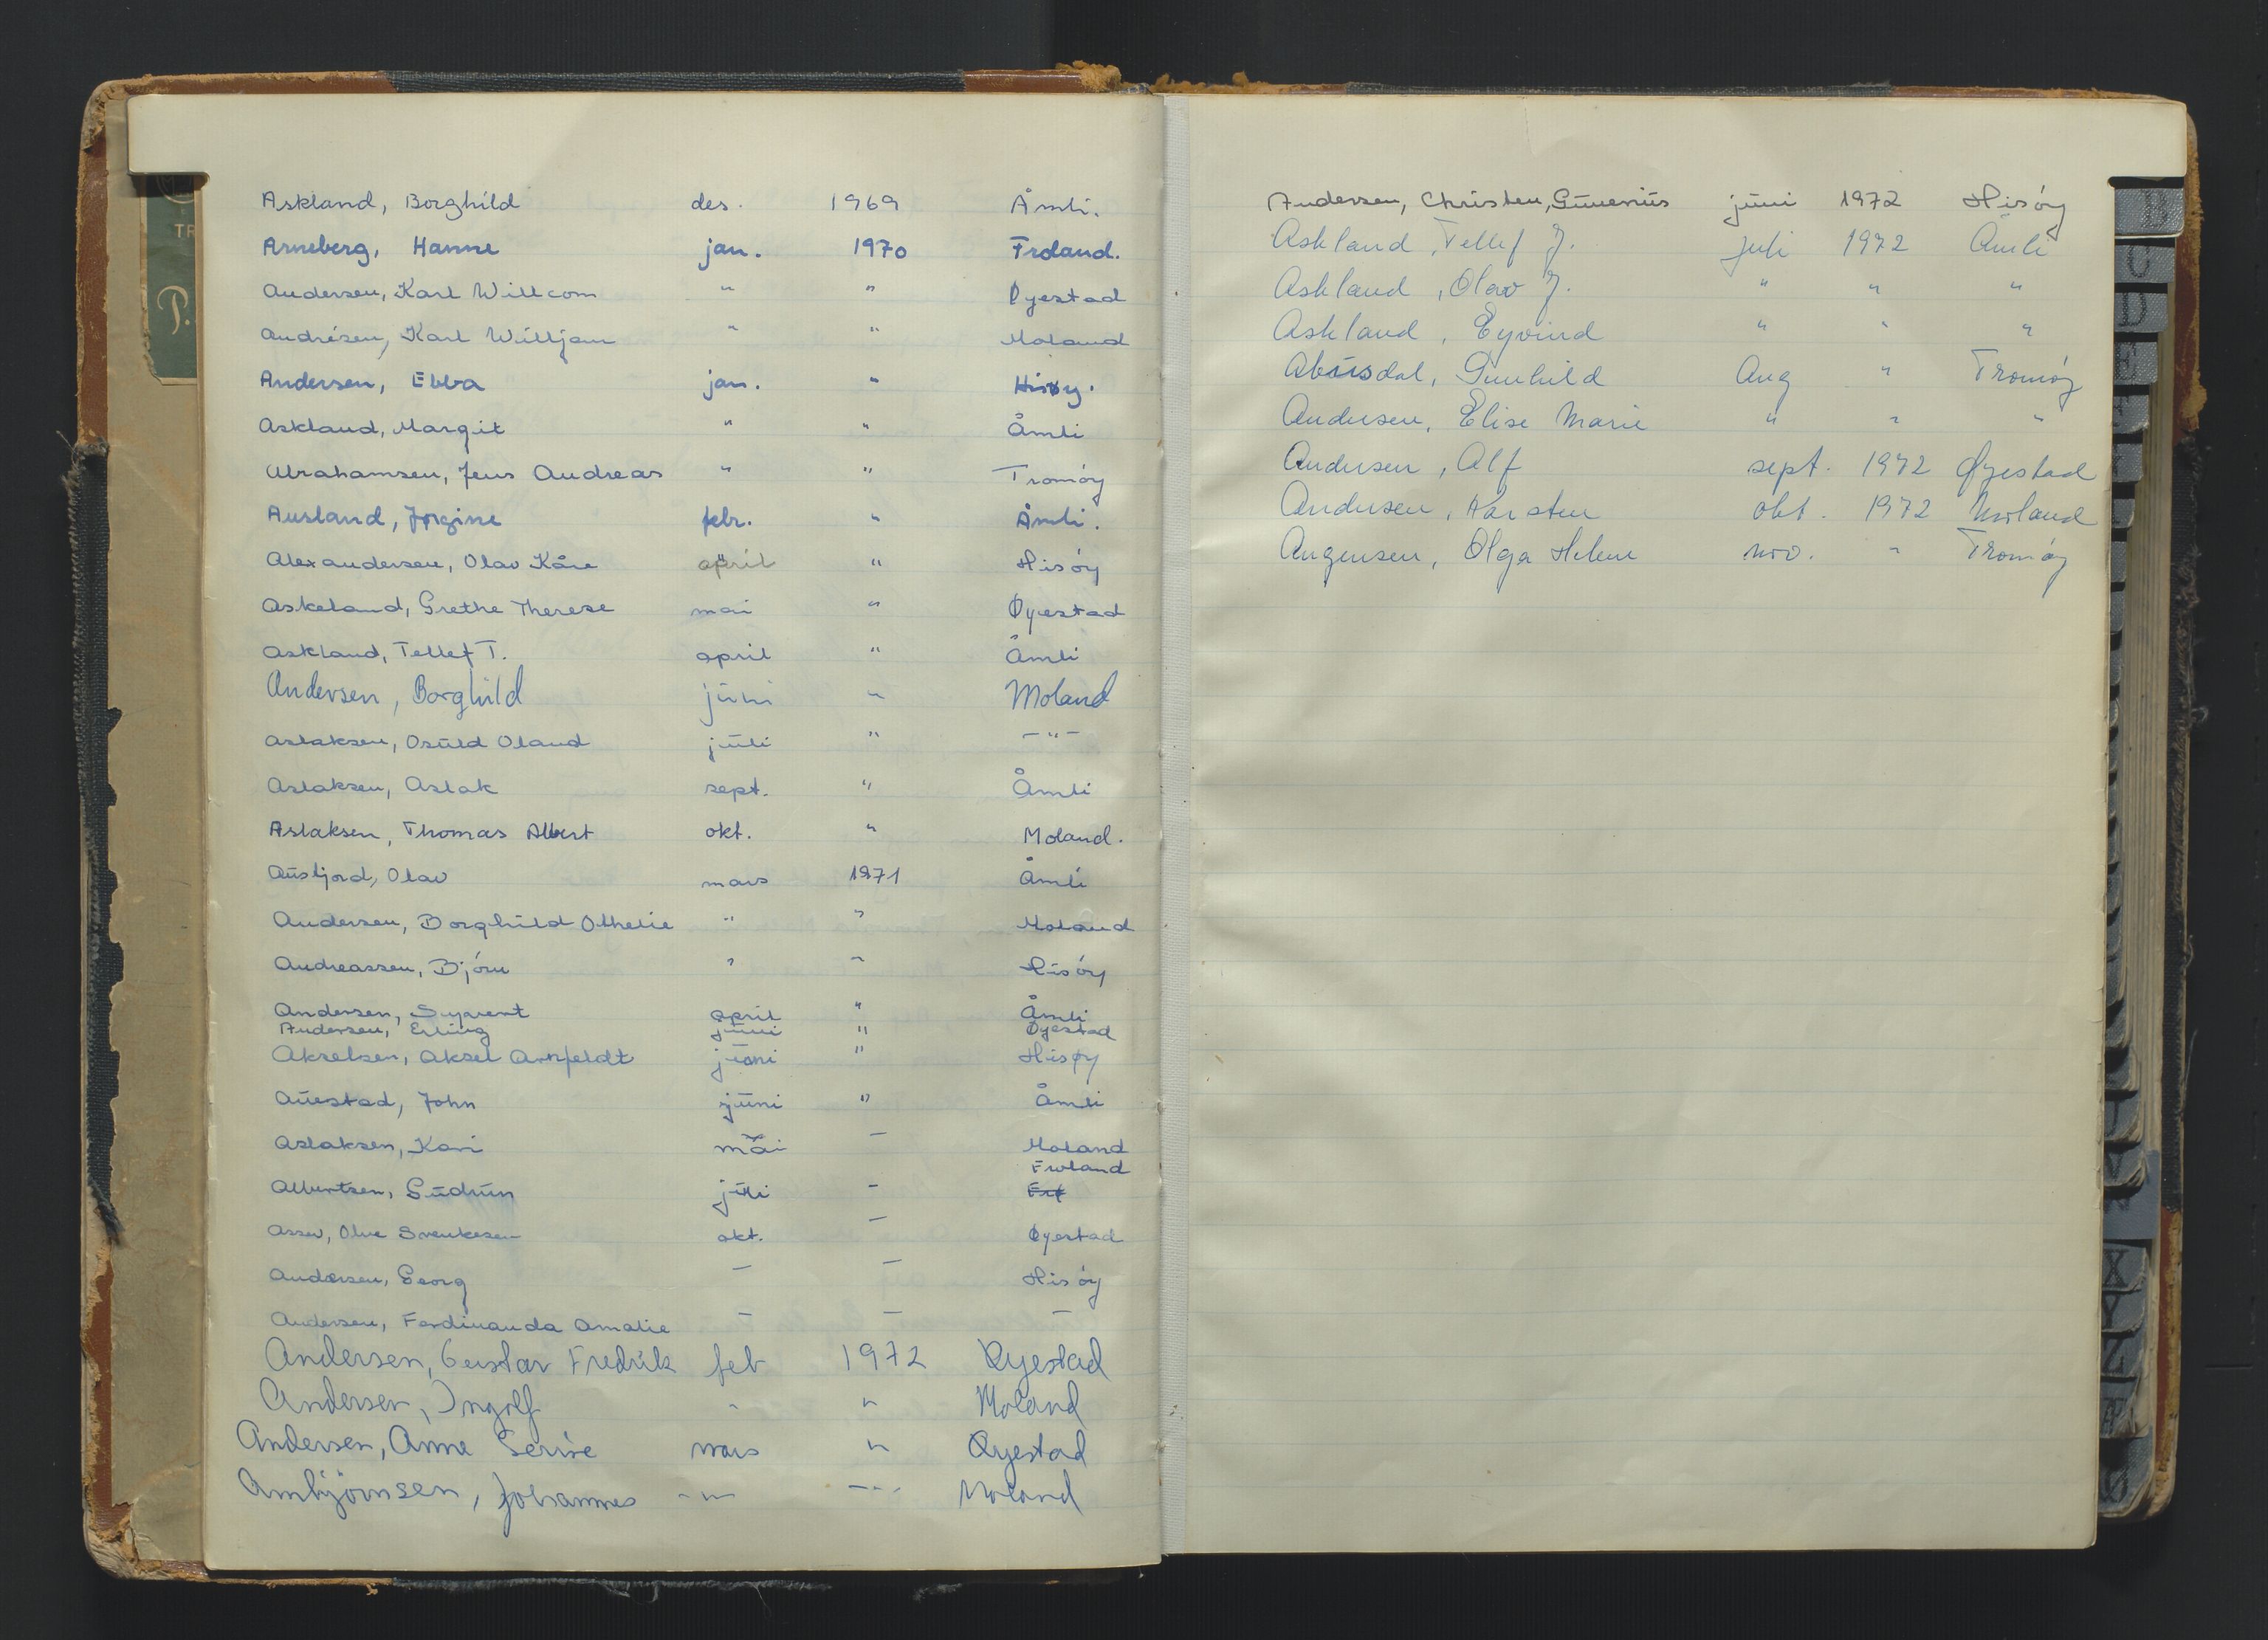 Askland, Borghild des. 1969 Åmli.
Arneberg, Hanne jan. 1970 Froland.
Andersen, Karl Willcom " " Øyestad
Andrésen, Karl Willjam " " Moland
Andersen, Ebba jan. " Hisøy.
Askland, Margit " " Åmli
Abrahamsen, Jens Andreas " " Tromöy
Ausland, Jørgine febr. " Åmli.
Alexandersen, Olav Kåre april " Hisöy
Askeland, Grethe Therese mai " Øyestad
Askland, Tellef T. april " Åmli
Andersen, Borghild juni " Moland
Aslaksen, Osuld Oland juli " -"-
Aslaksen, Aslak sept. " Åmli
Aslaksen, Thomas Albert okt. " Moland.
Ausljord, Olav mars 1971 Åmli
Andersen, Borghild Othelie " " Moland
Andreassen, Björn " " Hisöy
Andersen, Syvert april " Åmli
Andersen, Erling juni " Øyestad
Akselsen, Aksel Arnfeldt juni " Hisøy
Auestad, John juni " Åmli
Aslaksen, Kari mai - Moland
Froland
Albertsen, Gudrun juli -
Assev, Olve okt. - Øyestad
Andersen, Georg - - Hisöy
Andersen, Ferdinanda Amalie - - -
Andersen, Gustav Fredrik feb 1972 Øyestad
Andersen, Ingolf " " Moland
Andersen, Anne Serine mars " Øyestad
Arnbjörnsen, Johannes -"- -"- Moland
Andersen, Christen, Gunerius juni 1972 Hisöy
Askland, Tellef J. juli 1972 Åmli
Askland, Olav J. " " "
Askland, Eyvind " " "
Abusdal, Gunhild Aug " Tromöy
Andersen, Elise Marie " " "
Andersen, Alf sept. 1972 Øyestad
Andersen, Karsten okt. 1972 Moland
Angensen, Olga Helene nov. " Tromöy
TR
P.
B
C
D
E
X
Y
Z
Æ
Ø